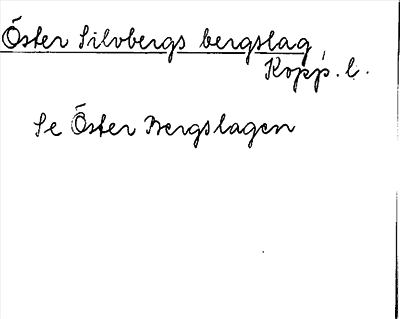 Öster Silvbergs bergslag,
Kopp. l.
Se Öster Bergslagen